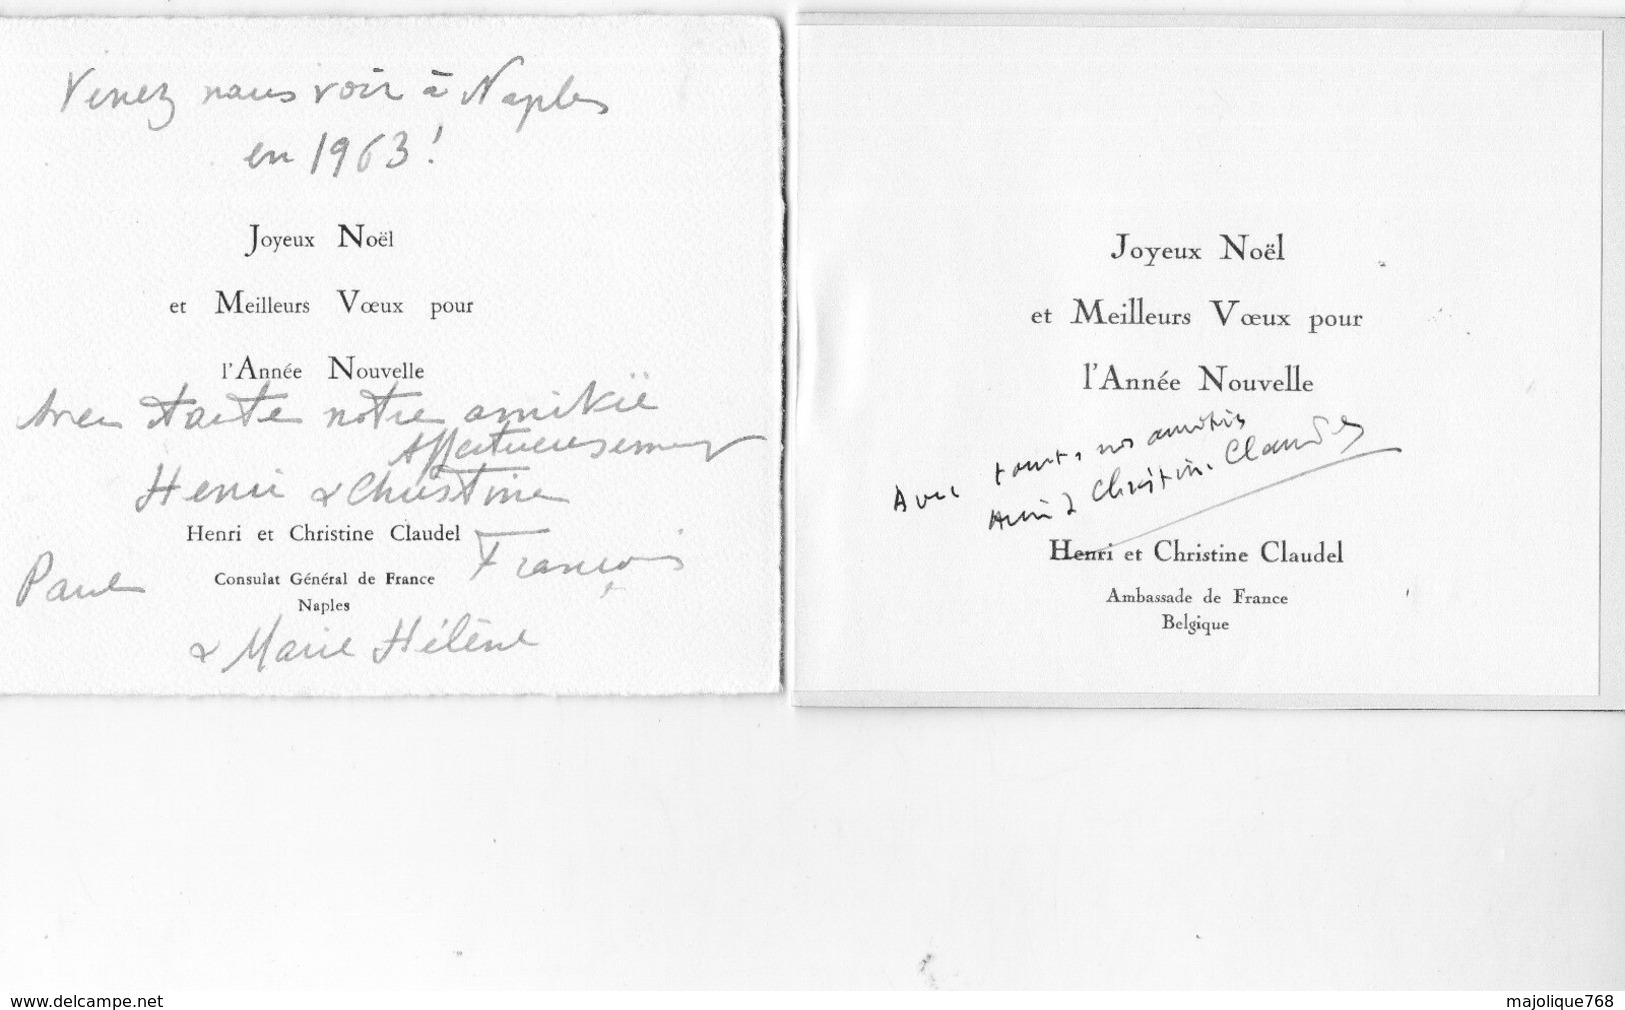 Venez nous voir à Naples
en 1963 !
Joyeux Noël
et Meilleurs Vœux pour
l'Année Nouvelle
Avec toute notre amitié
Affectueusement
Henri & Christine
Henri et Christine Claudel
François
Paul
Consulat Général de France
Naples
& Marie Hélène
Joyeux Noël
et Meilleurs Vœux pour
l'Année Nouvelle
Avec toutes nos amitiés
Henri & Christine Claudel
Henri et Christine Claudel
Ambassade de France
Belgique
www.delcampe.net
majolique768